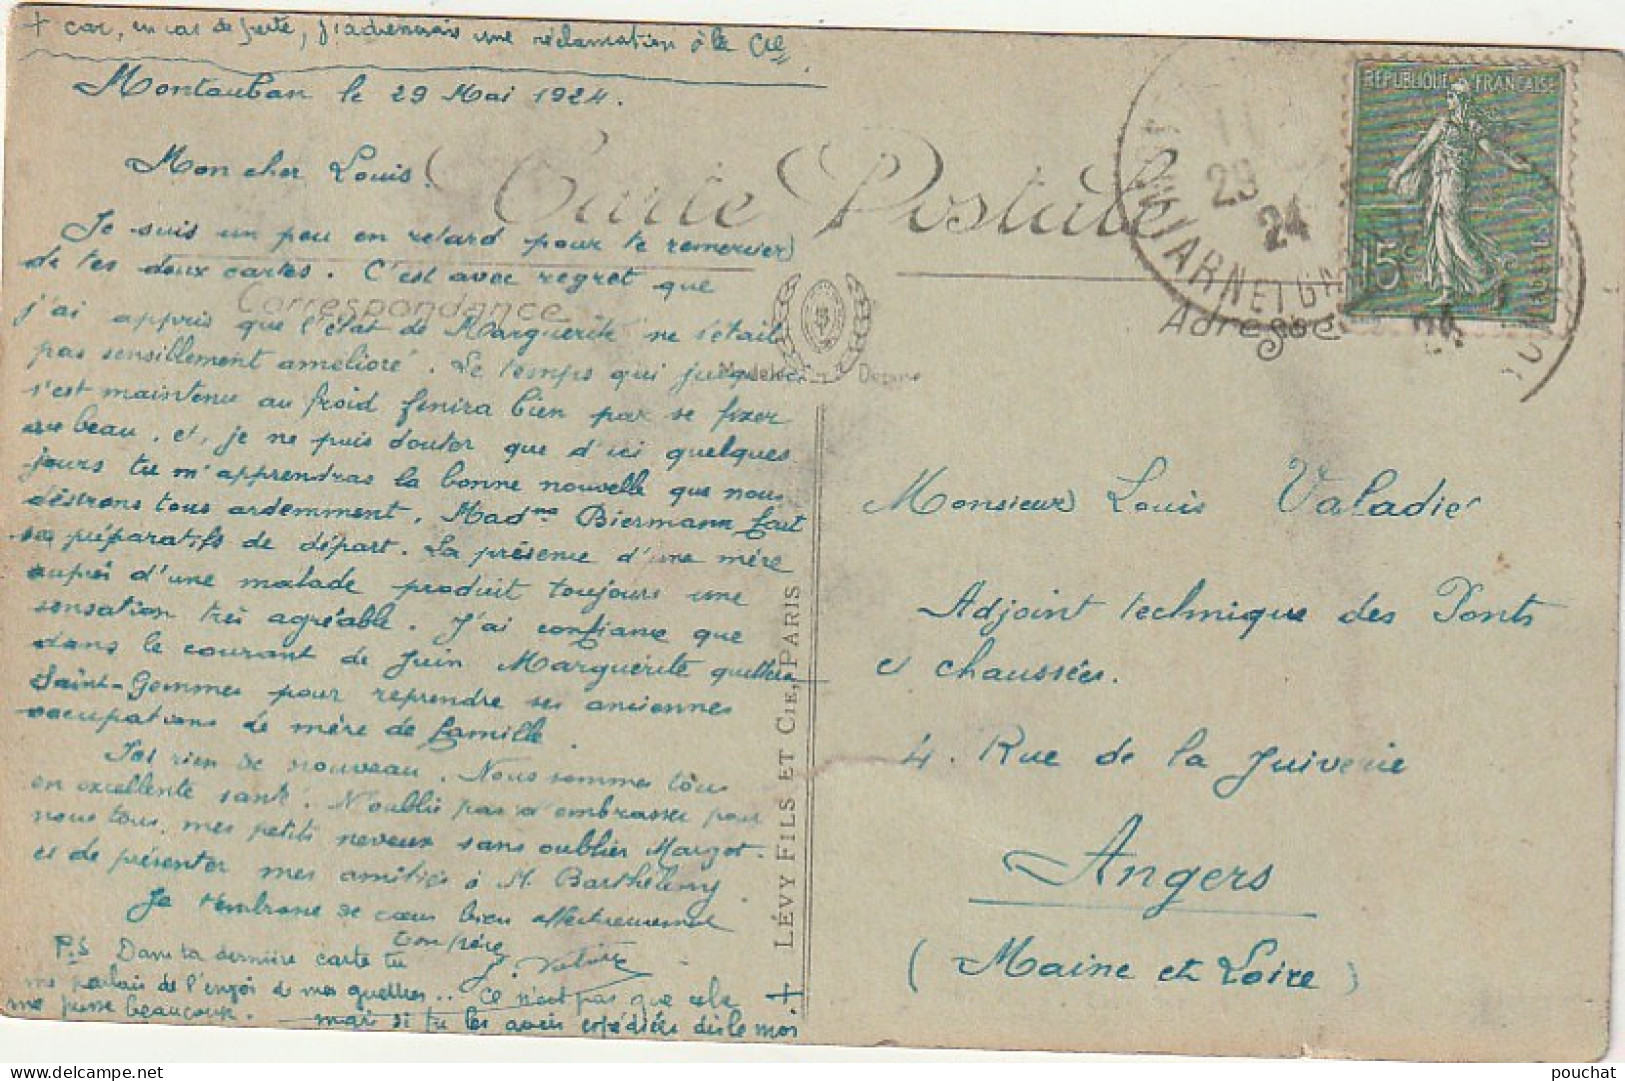 + car, en cas de perte, j'adresserais une réclamation à la Cie
Montauban le 29 Mai 1924.
Mon cher Louis.
Je suis un peu en retard pour te remercier
de tes deux cartes. C'est avec regret que
j'ai appris que l'état de Marguerite ne s'était
pas sensiblement amélioré. Le temps qui jusque
s'est maintenu au froid finira bien par se fixer
au beau, et, je ne puis douter que d'ici quelques
jours tu m'apprendras la bonne nouvelle que nous
désirons tous ardemment. Madme Biermann fait
ses préparatifs de départ. La présence d'une mère
auprès d'une malade produit toujours une
sensation très agréable. J'ai confiance que
dans le courant de Juin Marguerite quittera
Saint-Gemmes pour reprendre ses anciennes
occupations de mère de famille.
rien de nouveau. Nous sommes tous
en excellente santé. N'oublie pas d'embrasser pour
nous tous, mes petits neveux sans oublier Margot.
et de présenter mes amitiés à M. Barthélemy.
Je t'embrasse de cœur bien affectueusement
ton père
P.S Dans ta dernière carte tu
me parlais de l'envoi de mes guêtres.. Ce n'est pas que cela
me presse beaucoup. mais si tu les avais expédiées dès le moi
+
Carte Postale
Correspondance
Adresse
LÉVY FILS ET CIE, PARIS
RÉPUBLIQUE FRANÇAISE
15c
29
24
TARN ET GAR
Monsieur Louis Valadié
Adjoint technique des Ponts
et chaussées.
4. Rue de la Juiverie
Angers
(Maine et Loire)
pouchat